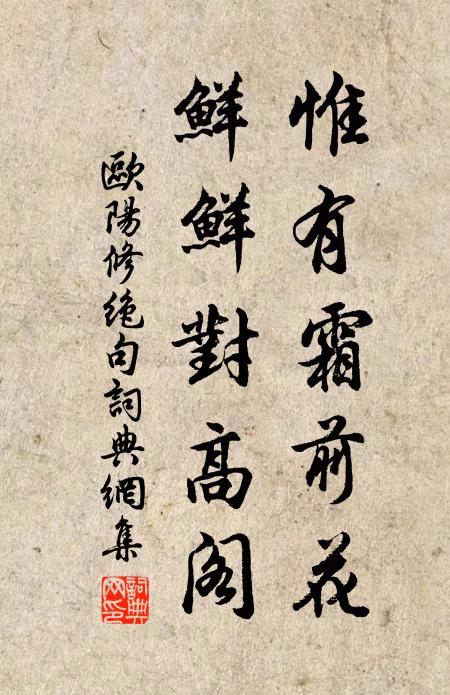 惟有霜前花
鮮鮮對高閣
歐陽修絶句詞典網集
詞典
网印